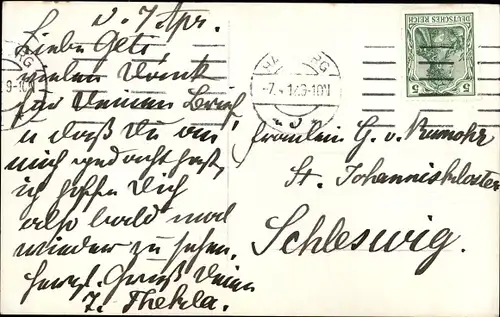 d. 7 Apr.
Liebe Geti
vielen Dank
für Deinen Brief,
u daß Du an
mich gedacht hast,
ich hoffe Dich
also bald mal
wieder zu sehen.
Herzl. Gruß Deine
T. Thekla.
DEUTSCHES REICH
5 5
HA RG
-7. 12.9-10N
RG
9-10N
Fräulein G. v. Rumohr
St. Johanniskloster
Schleswig.